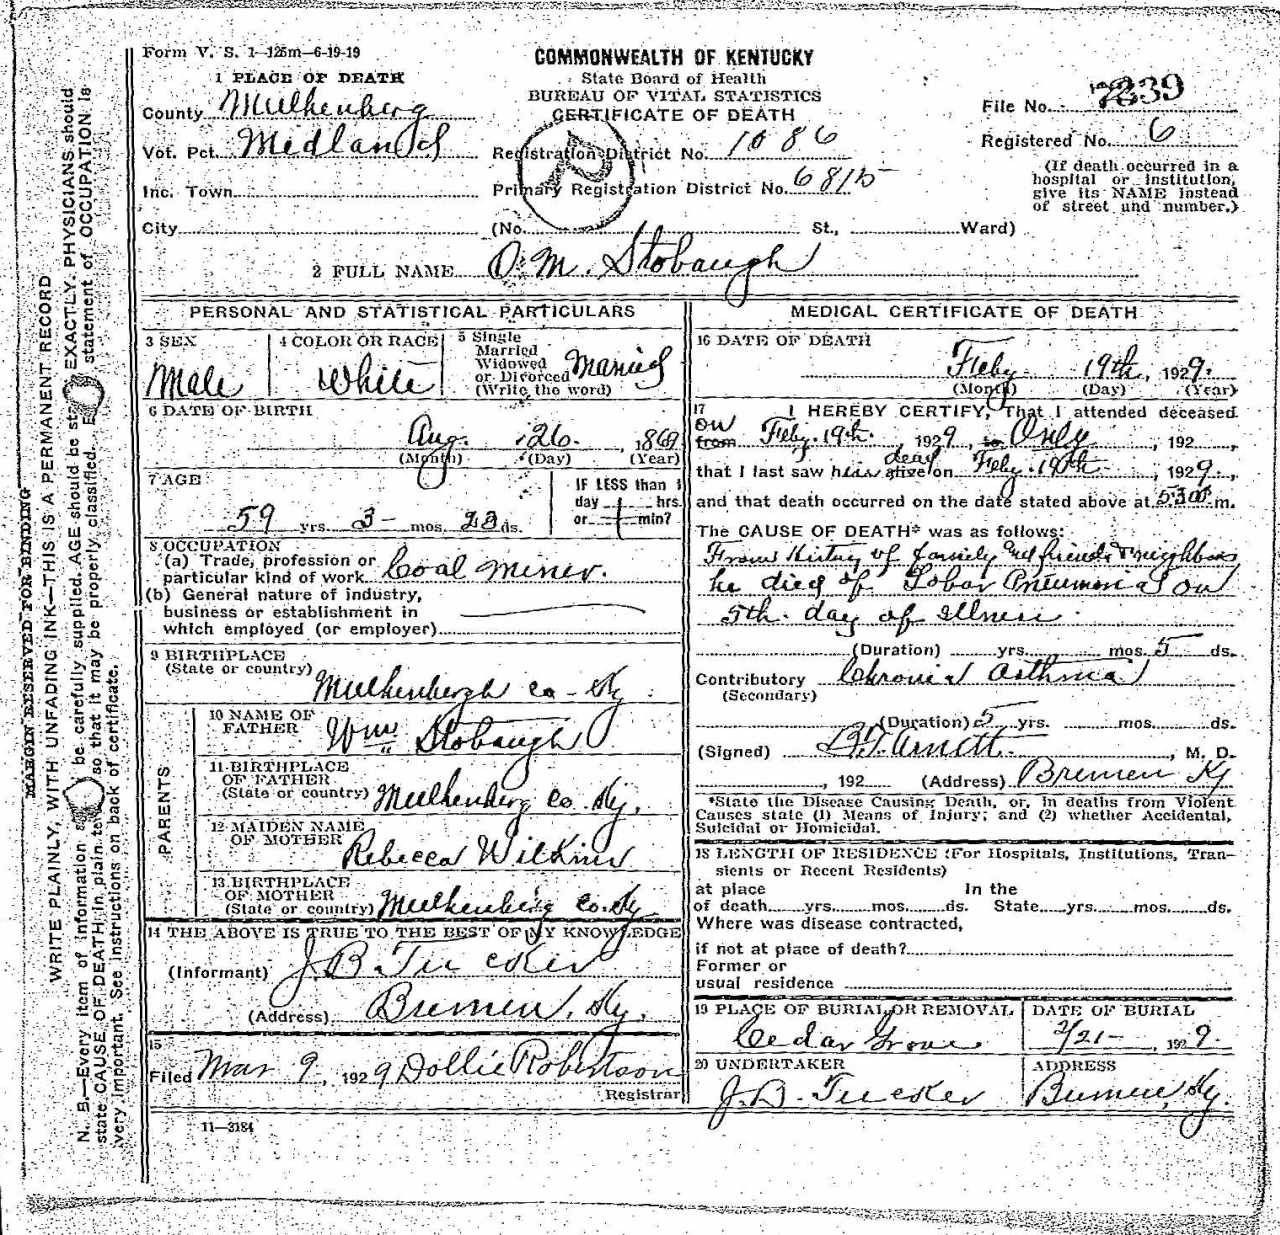 Form V. S. 1—125m—6-19-19
COMMONWEALTH OF KENTUCKY
State Board of Health
BUREAU OF VITAL STATISTICS
CERTIFICATE OF DEATH
File No. 7239
Registered No. 6
(If death occurred in a
hospital or institution,
give its NAME instead
of street and number.)
1 PLACE OF DEATH
County Mulhenberg
Vot. Pct. Midland
Inc. Town
City
Registration District No. 1086
Primary Registration District No. 6815
(No. St., Ward)
2 FULL NAME O. M. Stobaugh
PERSONAL AND STATISTICAL PARTICULARS
3 SEX
Male
4 COLOR OR RACE
White
5 Single
Married
Widowed
or Divorced
(Write the word)
Married
6 DATE OF BIRTH
Aug. 26. , 1869
(Month) (Day) (Year)
7 AGE
59 yrs. 3 mos. 23 ds.
IF LESS than 1
day hrs.
or min?
8 OCCUPATION
(a) Trade, profession or
particular kind of work Coal miner.
(b) General nature of industry,
business or establishment in
which employed (or employer)
9 BIRTHPLACE
(State or country)
Mulhenbergh co - Ky
PARENTS
10 NAME OF
FATHER Wm Stobaugh
11 BIRTHPLACE
OF FATHER
(State or country) Mulhenberg Co. Ky.
12 MAIDEN NAME
OF MOTHER Rebecca Wilkins
13 BIRTHPLACE
OF MOTHER
(State or country) Mulhenberg Co. Ky
14 THE ABOVE IS TRUE TO THE BEST OF MY KNOWLEDGE
(Informant) J. B. Tucker
(Address) Bremen, Ky.
15
Filed Mar 9, 1929 Dollie Robertson
Registrar
11—3184
MEDICAL CERTIFICATE OF DEATH
16 DATE OF DEATH
Feby. 19th , 1929.
(Month) (Day) (Year)
17 I HEREBY CERTIFY, That I attended deceased
on from Feby. 19th. , 1929, to Only , 192 ,
that I last saw him dead alive on Feby. 19th , 1929.,
and that death occurred on the date stated above at m.
The CAUSE OF DEATH* was as follows:
From History of family and friends & neighbors
he died of Lobar Pneumonia on
5th. day of illness.
(Duration) yrs. mos. 5 ds.
Contributory Chronic Asthma
(Secondary)
(Duration) 5 yrs. mos. ds.
(Signed) B.T. Arnett. , M. D.
, 192 (Address) Bremen Ky
*State the Disease Causing Death, or, in deaths from Violent
Causes state (1) Means of Injury; and (2) whether Accidental,
Suicidal or Homicidal.
18 LENGTH OF RESIDENCE (For Hospitals, Institutions, Tran-
sients or Recent Residents)
at place In the
of death yrs. mos. ds. State yrs. mos. ds.
Where was disease contracted,
if not at place of death?
Former or
usual residence
19 PLACE OF BURIAL OR REMOVAL
Cedar Grove
DATE OF BURIAL
2/21- , 1929.
20 UNDERTAKER
J. B. Tucker
ADDRESS
Bremen, Ky.
MARGIN RESERVED FOR BINDING
WRITE PLAINLY, WITH UNFADING INK—THIS IS A PERMANENT RECORD
N. B.—Every item of information should be carefully supplied. AGE should be stated EXACTLY. PHYSICIANS should
state CAUSE OF DEATH in plain terms so that it may be properly classified. Exact statement of OCCUPATION is
very important. See instructions on back of certificate.